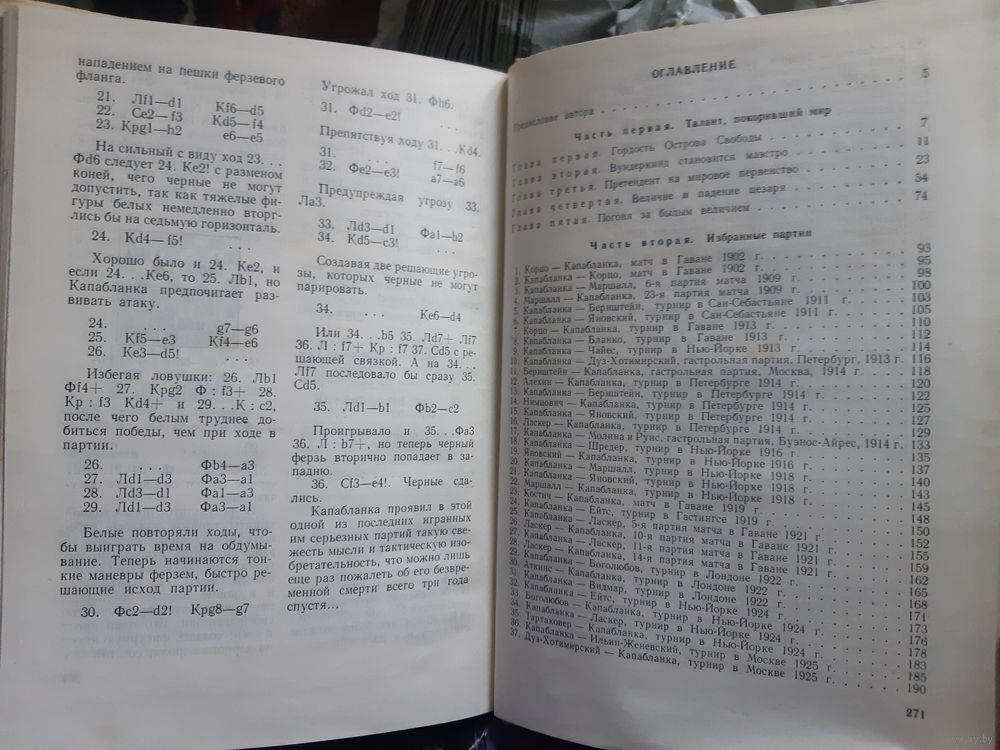 нападением на пешки ферзевого
фланга.
21. Лf1—d1 Кf6—d5
22. Се2—f3 Кd5—f4
23. Крg1—h2 е6—е5
На сильный с виду ход 23. . .
Фd6 следует 24. Ке2! с разменом
коней, чего черные не могут
допустить, так как тяжелые фи-
гуры белых немедленно вторг-
лись бы на седьмую горизонталь.
24. Кd4—f5! . . .
Хорошо было и 24. Ке2, и
если 24. . .Ке6, то 25. Лb1, но
Капабланка предпочитает раз-
вивать атаку.
24. . . . g7—g6
25. Кf5—е3 Кf4—е6
26. Ке3—d5! . . .
Избегая ловушки: 26. Лb1
Фf4+ 27. Крg2 Ф : f3+ 28.
Кр : f3 Кd4+ и 29. . .К : с2,
после чего белым труднее до-
биться победы, чем при ходе в
партии.
26. . . . Фb4—а3
27. Лd1—d3 Фа3—а1
28. Лd3—d1 Фа1—а3
29. Лd1—d3 Фа3—а1
Белые повторяли ходы, что-
бы выиграть время на обдумы-
вание. Теперь начинаются тон-
кие маневры ферзем, быстро ре-
шающие исход партии.
30. Фс2—d2! Крg8—g7
Угрожал ход 31. Фh6.
31. Фd2—е2! . . .
Препятствуя ходу 31. . .Кd4.
31. . . . f7—f6
32. Фе2—е3! а7—а6
Предупреждая угрозу 33.
Ла3.
33. Лd3—d1 Фа1—b2
34. Кd5—с3! . . .
Создавая две решающие угро-
зы, которых черные не могут
парировать.
34. . . . Ке6—d4
Или 34. . .b5 35. Лd7+ Лf7
36. Л : f7+ Кр : f7 37. Сd5 с ре-
шающей связкой. А на 34. . .
Лf7 последовало бы сразу 35.
Сd5.
35. Лd1—b1 Фb2—с2
Проигрывало и 35. . .Фа3
36. Л : b7+, но теперь черный
ферзь вторично попадает в за-
падню.
36. Сf3—е4!. Черные сда-
лись.
Капабланка проявил в этой
одной из последних игранных
им серьезных партий такую све-
жесть мысли и тактическую изо-
бретательность, что можно лишь
еще раз пожалеть об его безвре-
менной смерти всего три года
спустя...
ОГЛАВЛЕНИЕ
Предисловие автора . . . 5
Часть первая. Талант, покоривший мир
Глава первая. Гордость Острова Свободы . . . 7
Глава вторая. Вундеркинд становится маэстро . . . 11
Глава третья. Претендент на мировое первенство . . . 23
Глава четвертая. Величие и падение цезаря . . . 54
Глава пятая. Погоня за былым величием . . . 74
Часть вторая. Избранные партии
1. Корцо — Капабланка, матч в Гаване 1902 г. . . . 93
2. Капабланка — Корцо, матч в Гаване 1902 г. . . . 95
3. Капабланка — Маршалл, 6-я партия матча 1909 г. . . . 98
4. Маршалл — Капабланка, 23-я партия матча 1909 г. . . . 100
5. Капабланка — Бернштейн, турнир в Сан-Себастьяне 1911 г. . . . 103
6. Капабланка — Яновский, турнир в Сан-Себастьяне 1911 г. . . . 105
7. Корцо — Капабланка, турнир в Гаване 1913 г. . . . 110
8. Капабланка — Бланко, турнир в Гаване 1913 г. . . . 112
9. Капабланка — Чайес, турнир в Нью-Йорке 1913 г. . . . 114
10. Капабланка — Дуз-Хотимирский, гастрольная партия, Петербург, 1913 г. 116
11. Бернштейн — Капабланка, гастрольная партия, Москва, 1914 г. . . . 118
12. Алехин — Капабланка, турнир в Петербурге 1914 г. . . . 120
13. Капабланка — Бернштейн, турнир в Петербурге 1914 г. . . . 122
14. Нимцович — Капабланка, турнир в Петербурге 1914 г. . . . 125
15. Капабланка — Яновский, турнир в Петербурге 1914 г. . . . 127
16. Ласкер — Капабланка, турнир в Петербурге 1914 г. . . . 129
17. Капабланка — Молина и Руис, гастрольная партия, Буэнос-Айрес, 1914 г. 133
18. Капабланка — Шредер, турнир в Нью-Йорке 1916 г. . . . 135
19. Яновский — Капабланка, турнир в Нью-Йорке 1916 г. . . . 137
20. Капабланка — Маршалл, турнир в Нью-Йорке 1918 г. . . . 140
21. Капабланка — Яновский, турнир в Нью-Йорке 1918 г. . . . 143
22. Маршалл — Капабланка, турнир в Нью-Йорке 1918 г. . . . 145
23. Костич — Капабланка, матч в Гаване 1919 г. . . . 148
24. Капабланка — Ейтс, турнир в Гастингсе 1919 г. . . . 150
25. Капабланка — Ласкер, 5-я партия матча в Гаване 1921 г. . . . 152
26. Ласкер — Капабланка, 10-я партия матча в Гаване 1921 г. . . . 155
27. Капабланка — Ласкер, 11-я партия матча в Гаване 1921 г. . . . 159
28. Ласкер — Капабланка, 14-я партия матча в Гаване 1921 г. . . . 162
29. Капабланка — Боголюбов, турнир в Лондоне 1922 г. . . . 165
30. Аткинс — Капабланка, турнир в Лондоне 1922 г. . . . 168
31. Капабланка — Видмар, турнир в Лондоне 1922 г. . . . 171
32. Капабланка — Ейтс, турнир в Нью-Йорке 1924 г. . . . 173
33. Боголюбов — Капабланка, турнир в Нью-Йорке 1924 г. . . . 176
34. Капабланка — Ласкер, турнир в Нью-Йорке 1924 г. . . . 178
35. Тартаковер — Капабланка, турнир в Нью-Йорке 1924 г. . . . 183
36. Капабланка — Ильин-Женевский, турнир в Москве 1925 г. . . . 185
37. Дуз-Хотимирский — Капабланка, турнир в Москве 1925 г. . . . 190
271